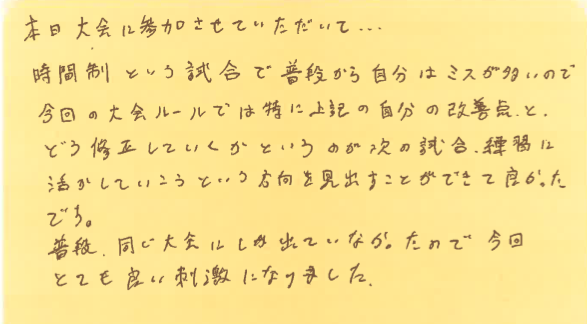 本日大会に参加させていただいて...
時間制という試合で普段から自分はミスが多いので
今回の大会ルールでは特に上記の自分の改善点と、
どう修正していくかというのが次の試合、練習に
活かしていこうという方向を見出すことができて良かった
です。
普段、同じ大会にしか出ていなかったので今回
とても良い刺激になりました。